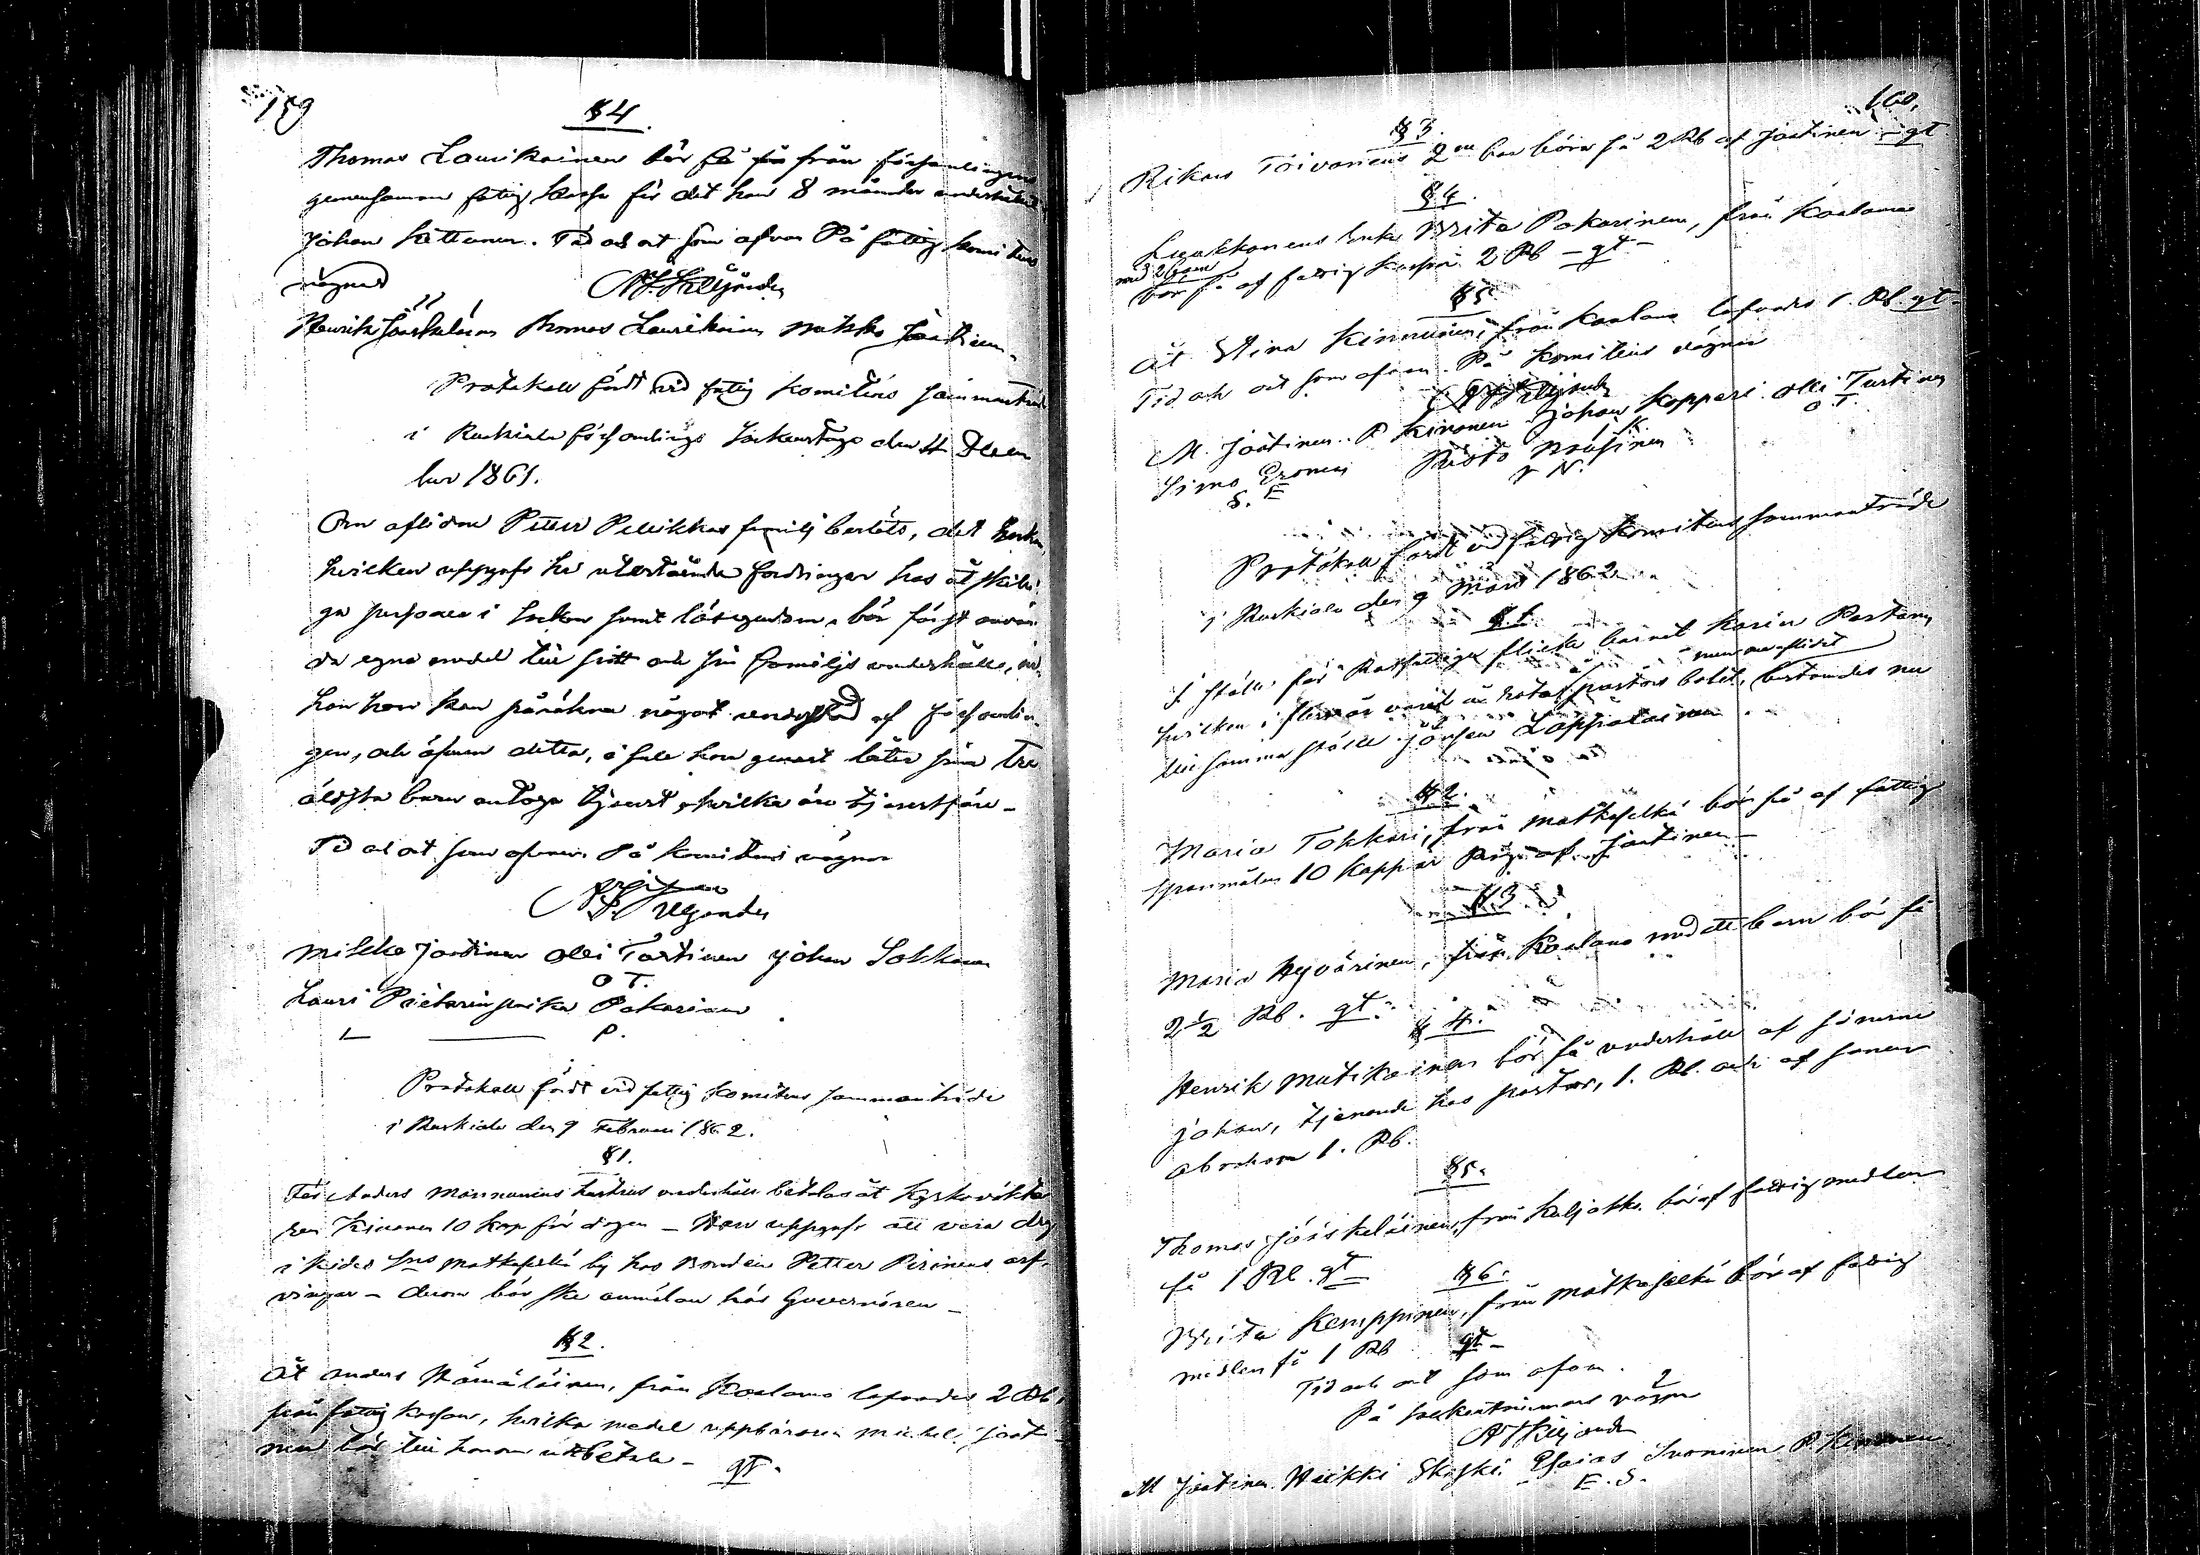 159
§ 4.
Thomas Laurikainen bör få från församlingens
gemensamma fattig kassa för det han 8 månader underhållit
Johan Kettunen. Tid och ort som ofvan På fattig komitens
vägnar
A F Kiljander
Henrik Jääskeläinen Thomas Laurikainen Mikko Jaatinen
Protokoll fördt vid fattig komiténs sammanträde
i Ruskiala församlings Sockenstuga den 4 Decem
ber 1861.
Om aflidne Petter Pellikkas familj beslöts, att Enkan
hvilken uppgafs ha utestående fordringar hos åtskilli
ga personer i Socken samt lösegendom, bör först använ
da egna medel till sitt och sin familjs underhålle, in
han hon kan påräkna något understöd af församlin
gen, och äfven detta, i fall hon genast låter sina tre
äldsta barn antaga tjenst, hvilka äro tjenstföre –
Tid och ort som ofvan På Komiténs vägnar
A F Kiljander
Mikko Jaatinen Olli Tastinen Johan Sokkanen
O T.
Lauri Pietarinpoika Pakarinen
L P.
Protokoll fördt vid fattig Komitens sammanträde
i Ruskiala den 9 Februari 1862.
§ 1.
För Anders Mannoninens hustrus underhåll betalas åt Kyrkovakta
ren Kinonen 10 Kop för dagen – Han uppgafs att vara dräng
i Kides Sns Matkaselkä by hos Bonden Petter Pirinens arf
vingar – derom bör ske anmälan hos Guvernören –
§ 2.
Åt Anders Hämäläinen, från Kaalamo lofvades 2 Rb,
från fattig kassan, hvilka medel uppbäraren Michel Jaati
nen bör till honom utbetala – gt.
160.
§ 3.
Rikas Toivanens 2ne bar böra få 2 Rb af Jaatinen – gt
§ 4.
Luukkonens Enka Brita Pakarinen, från Kaalamo
med 2 barn
bör få af fattig kassan 2 Rb – gt –
§ 5.
Åt Stina Kinnunen, från Kaalamo lofvades 1. Rb. gt –
Tid och ort som ofvan. På Komiténs vägnar
A F Kiljander
M. Jaatinen. P Kinonen Johan Koppari Olli Tastinen
O T.
Simo Eronen Risto Nousinen
S. E r N.
Protokoll fördt vid fattig Komitens sammanträde
i Ruskiala den 9 Mars 1862
§ 1.
I stället för Rotfattiga flicka barnet Karin Partanen
men nu aflidit
hvilken i flera år varit å rotas pastors bolet, bestämdes nu
till samma ställe Johan Lappalainen
§ 2.
Maria Tokkari, från Matkaselkä bör få af fattig
spanmålen 10 Kappar Råg af Jaatinen –
§ 3
Maria Hyvärinen, från Kaalamo med ett barn bör få
2 1/2 Rb. gt –
§ 4.
Henrik Mutikainen bör få underhåll af sönerne
Johan, tjenande hos pastor, 1. Rb. och af sonen
Abraham 1. Rb.
§ 5.
Thomas Jääskeläinen, från Kuljakko bör af fattig medlen
få 1 Rb. gt
§ 6.
Brita Kemppinen, från Matkaselkä bör af fattig
medlen få 1 Rb gt –
Tid och ort som ofvan.
På sockenstämmans vägnar
A F Kiljander
M Jaatinen Heikki Esaias Ivoninen P. Kinonen
E. S.